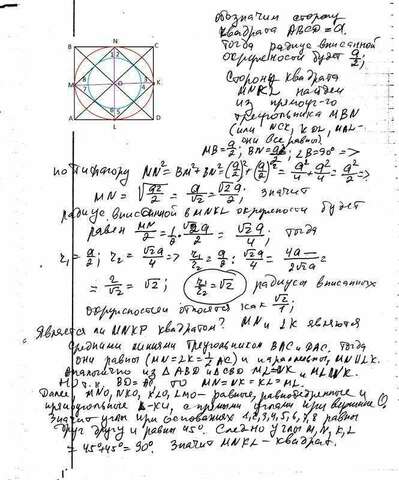 B N C
M O K
A L D
1 2 3 4 5 6 7 8
Обозначим сторону
квадрата ABCD = a.
Тогда радиус вписанной
окружности будет a/2;
Сторону квадрата
MNKL найдем
из прямоуг-го
треугольника MBN
(или NCK, KDL, MAL-
они все равны)
MB = a/2; BN = a/2; ∠B = 90° =>
по Пифагору MN² = BM² + BN² = (a/2)² + (a/2)² = a²/4 + a²/4 = a²/2 =>
MN = √(a²/2) = a/√2 = √2a/2, значит
радиус вписанной в MNKL окружности будет
равен MN/2 = √2a/4; тогда
r₁ = a/2; r₂ = √2a/4 => r₁/r₂ = a/2 : √2a/4 = 4a/2√2a =
= 2/√2 = √2; r₁/r₂ = √2 радиусы вписанных
окружностей относятся как √2/1;
Является ли MNKP квадратом? MN и LK являются
средними линиями треугольников BAC и DAC. Тогда
они равны (MN = LK = ½ AC) и параллельны, MN ∪ LK.
Аналогично из Δ ABD и Δ CBD ML = NK и ML ∪ NK.
Но т.к. BD = AC, то MN = NK = KL = ML.
Далее MNO, NKO, KLO, LMO - равные, равнобедренные и
прямоугольные Δ-ки, с прямыми углами при вершине O,
Значит углы при основаниях 1,2,3,4,5,6,7,8 равны
друг другу и равны 45°. Следно углы M, N, K, L
= 45°+45° = 90°. Значит MNKL - квадрат.